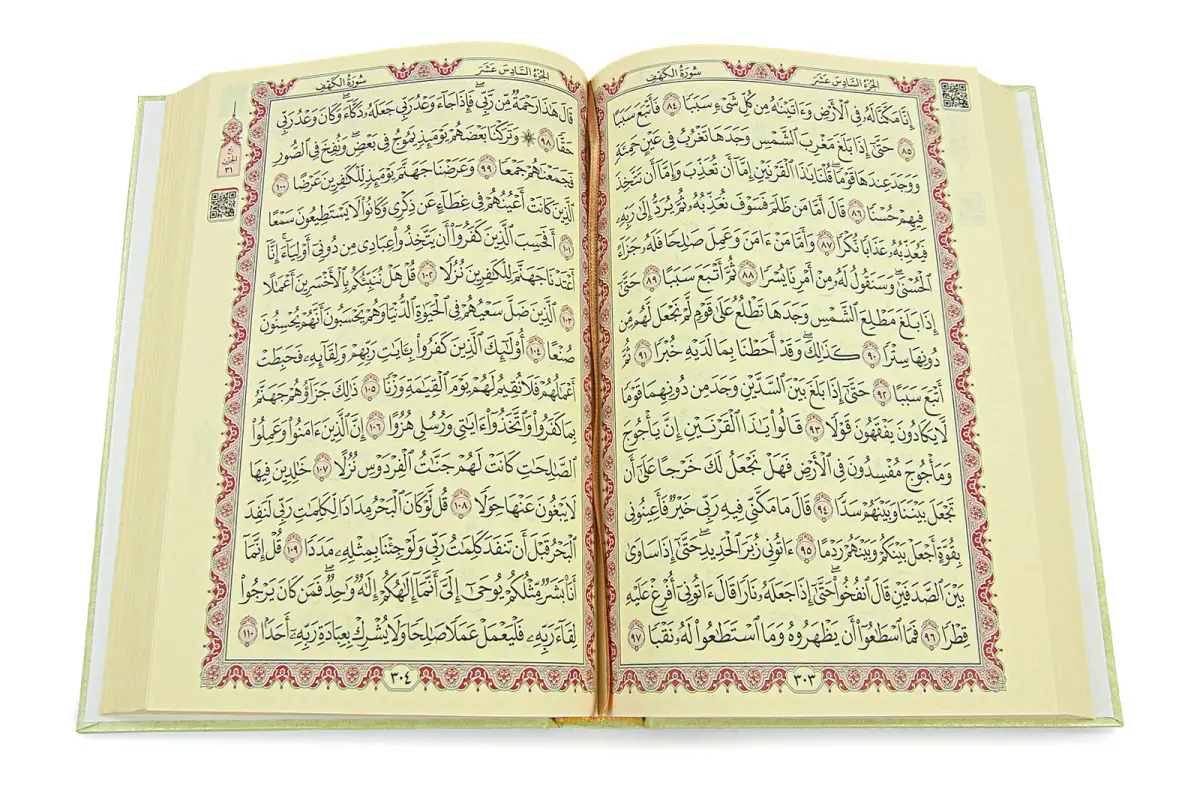 الجزء السادس عشر
سورة الكهف
إِنَّا مَكَّنَّا لَهُۥ فِى ٱلْأَرْضِ وَءَاتَيْنَٰهُ مِن كُلِّ شَىْءٍ سَبَبًا ٨٤ فَأَتْبَعَ سَبَبًا
٨٥ حَتَّىٰٓ إِذَا بَلَغَ مَغْرِبَ ٱلشَّمْسِ وَجَدَهَا تَغْرُبُ فِى عَيْنٍ حَمِئَةٍ
وَوَجَدَ عِندَهَا قَوْمًا ۗ قُلْنَا يَٰذَا ٱلْقَرْنَيْنِ إِمَّآ أَن تُعَذِّبَ وَإِمَّآ أَن تَتَّخِذَ
فِيهِمْ حُسْنًا ٨٦ قَالَ أَمَّا مَن ظَلَمَ فَسَوْفَ نُعَذِّبُهُۥ ثُمَّ يُرَدُّ إِلَىٰ رَبِّهِۦ
فَيُعَذِّبُهُۥ عَذَابًا نُّكْرًا ٨٧ وَأَمَّا مَنْ ءَامَنَ وَعَمِلَ صَٰلِحًا فَلَهُۥ جَزَآءً
ٱلْحُسْنَىٰ ۖ وَسَنَقُولُ لَهُۥ مِنْ أَمْرِنَا يُسْرًا ٨٨ ثُمَّ أَتْبَعَ سَبَبًا ٨٩ حَتَّىٰٓ
إِذَا بَلَغَ مَطْلِعَ ٱلشَّمْسِ وَجَدَهَا تَطْلُعُ عَلَىٰ قَوْمٍ لَّمْ نَجْعَل لَّهُم مِّن
دُونِهَا سِتْرًا ٩٠ كَذَٰلِكَ وَقَدْ أَحَطْنَا بِمَا لَدَيْهِ خُبْرًا ٩١ ثُمَّ
أَتْبَعَ سَبَبًا ٩٢ حَتَّىٰٓ إِذَا بَلَغَ بَيْنَ ٱلسَّدَّيْنِ وَجَدَ مِن دُونِهِمَا قَوْمًا
لَّا يَكَادُونَ يَفْقَهُونَ قَوْلًا ٩٣ قَالُوا۟ يَٰذَا ٱلْقَرْنَيْنِ إِنَّ يَأْجُوجَ
وَمَأْجُوجَ مُفْسِدُونَ فِى ٱلْأَرْضِ فَهَلْ نَجْعَلُ لَكَ خَرْجًا عَلَىٰٓ أَن
تَجْعَلَ بَيْنَنَا وَبَيْنَهُمْ سَدًّا ٩٤ قَالَ مَا مَكَّنِّى فِيهِ رَبِّى خَيْرٌ فَأَعِينُونِى
بِقُوَّةٍ أَجْعَلْ بَيْنَكُمْ وَبَيْنَهُمْ رَدْمًا ٩٥ ءَاتُونِى زُبَرَ ٱلْحَدِيدِ ۖ حَتَّىٰٓ إِذَا سَاوَىٰ
بَيْنَ ٱلصَّدَفَيْنِ قَالَ ٱنفُخُوا۟ ۖ حَتَّىٰٓ إِذَا جَعَلَهُۥ نَارًا قَالَ ءَاتُونِىٓ أُفْرِغْ عَلَيْهِ
قِطْرًا ٩٦ فَمَا ٱسْطَٰعُوٓا۟ أَن يَظْهَرُوهُ وَمَا ٱسْتَطَٰعُوا۟ لَهُۥ نَقْبًا ٩٧
٣٠٣
الجزء السادس عشر
سورة الكهف
قَالَ هَٰذَا رَحْمَةٌ مِّن رَّبِّى ۖ فَإِذَا جَآءَ وَعْدُ رَبِّى جَعَلَهُۥ دَكَّآءَ ۖ وَكَانَ وَعْدُ رَبِّى
حَقًّا ٩٨ ۞ وَتَرَكْنَا بَعْضَهُمْ يَوْمَئِذٍ يَمُوجُ فِى بَعْضٍ ۖ وَنُفِخَ فِى ٱلصُّورِ
فَجَمَعْنَٰهُمْ جَمْعًا ٩٩ وَعَرَضْنَا جَهَنَّمَ يَوْمَئِذٍ لِّلْكَٰفِرِينَ عَرْضًا ١٠٠
ٱلَّذِينَ كَانَتْ أَعْيُنُهُمْ فِى غِطَآءٍ عَن ذِكْرِى وَكَانُوا۟ لَا يَسْتَطِيعُونَ سَمْعًا
١٠١ أَفَحَسِبَ ٱلَّذِينَ كَفَرُوٓا۟ أَن يَتَّخِذُوا۟ عِبَادِى مِن دُونِىٓ أَوْلِيَآءَ ۚ إِنَّآ
أَعْتَدْنَا جَهَنَّمَ لِلْكَٰفِرِينَ نُزُلًا ١٠٢ قُلْ هَلْ نُنَبِّئُكُم بِٱلْأَخْسَرِينَ أَعْمَٰلًا
١٠٣ ٱلَّذِينَ ضَلَّ سَعْيُهُمْ فِى ٱلْحَيَوٰةِ ٱلدُّنْيَا وَهُمْ يَحْسَبُونَ أَنَّهُمْ يُحْسِنُونَ
صُنْعًا ١٠٤ أُو۟لَٰٓئِكَ ٱلَّذِينَ كَفَرُوا۟ بِـَٔايَٰتِ رَبِّهِمْ وَلِقَآئِهِۦ فَحَبِطَتْ
أَعْمَٰلُهُمْ فَلَا نُقِيمُ لَهُمْ يَوْمَ ٱلْقِيَٰمَةِ وَزْنًا ١٠٥ ذَٰلِكَ جَزَآؤُهُمْ جَهَنَّمُ
بِمَا كَفَرُوا۟ وَٱتَّخَذُوٓا۟ ءَايَٰتِى وَرُسُلِى هُزُوًا ١٠٦ إِنَّ ٱلَّذِينَ ءَامَنُوا۟ وَعَمِلُوا۟
ٱلصَّٰلِحَٰتِ كَانَتْ لَهُمْ جَنَّٰتُ ٱلْفِرْدَوْسِ نُزُلًا ١٠٧ خَٰلِدِينَ فِيهَا
لَا يَبْغُونَ عَنْهَا حِوَلًا ١٠٨ قُل لَّوْ كَانَ ٱلْبَحْرُ مِدَادًا لِّكَلِمَٰتِ رَبِّى لَنَفِدَ
ٱلْبَحْرُ قَبْلَ أَن تَنفَدَ كَلِمَٰتُ رَبِّى وَلَوْ جِئْنَا بِمِثْلِهِۦ مَدَدًا ١٠٩ قُلْ إِنَّمَآ
أَنَا۠ بَشَرٌ مِّثْلُكُمْ يُوحَىٰٓ إِلَىَّ أَنَّمَآ إِلَٰهُكُمْ إِلَٰهٌ وَٰحِدٌ ۖ فَمَن كَانَ يَرْجُوا۟
لِقَآءَ رَبِّهِۦ فَلْيَعْمَلْ عَمَلًا صَٰلِحًا وَلَا يُشْرِكْ بِعِبَادَةِ رَبِّهِۦٓ أَحَدًۢا ١١٠
٣٠٤
الحزب
٣١